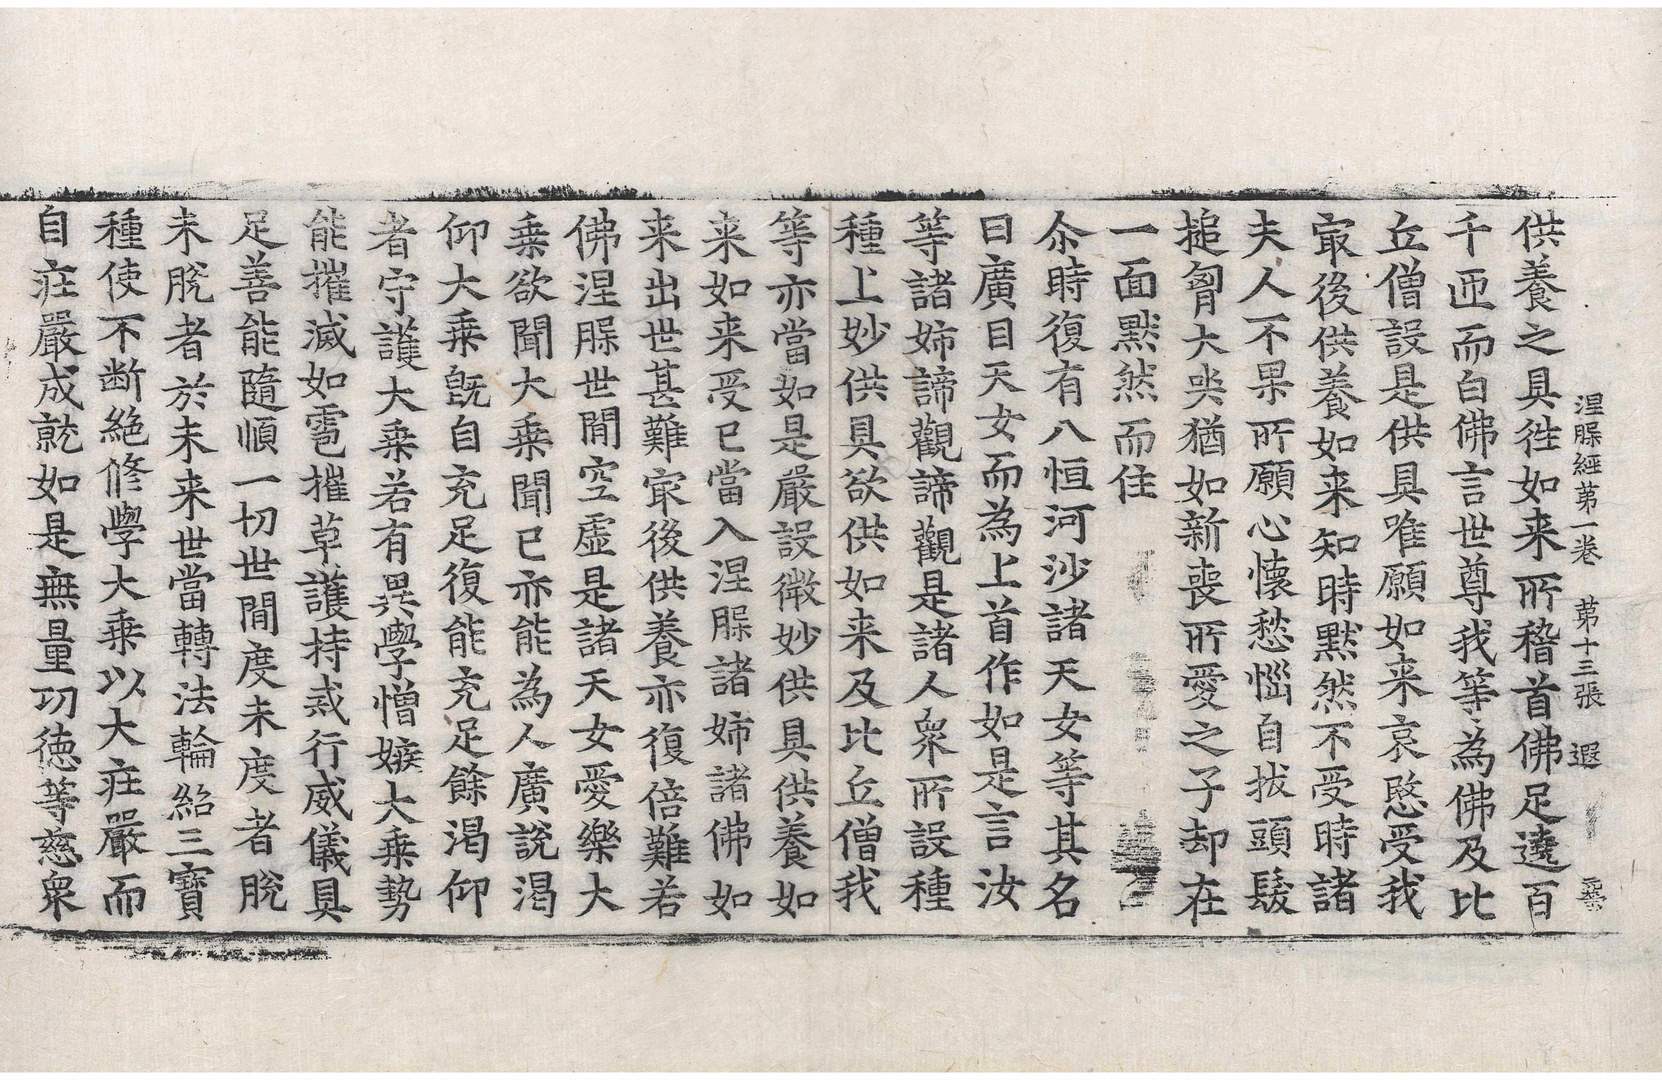 涅槃經第一卷　第十三張　遐
供養之具徃如来所稽首佛足遶百
千迊而白佛言世尊我等為佛及比
丘僧設是供具唯願如来哀愍受我
冣後供養如来知時默然不受時諸
夫人不果所願心懐愁惱自拔頭髮
搥匈大哭猶如新喪所愛之子却在
一面默然而住
尒時復有八恒河沙諸天女等其名
曰廣目天女而為上首作如是言汝
等諸姉諦觀諦觀是諸人衆所設種
種上妙供具欲供如来及比丘僧我
等亦當如是嚴設微妙供具供養如
来如来受已當入涅槃諸姉諸佛如
来出世甚難冣後供養亦復倍難若
佛涅槃世閒空虛是諸天女愛樂大
乗欲聞大乗聞已亦能為人廣說渴
仰大乗旣自充足復能充足餘渴仰
者守護大乗若有異學憎嫉大乗勢
能摧滅如雹摧草護持戒行威儀具
足善能隨順一切世閒度未度者脫
未脫者於未来世當轉法輪紹三寶
種使不断絶修學大乗以大莊嚴而
自莊嚴成就如是無量功徳等慈衆